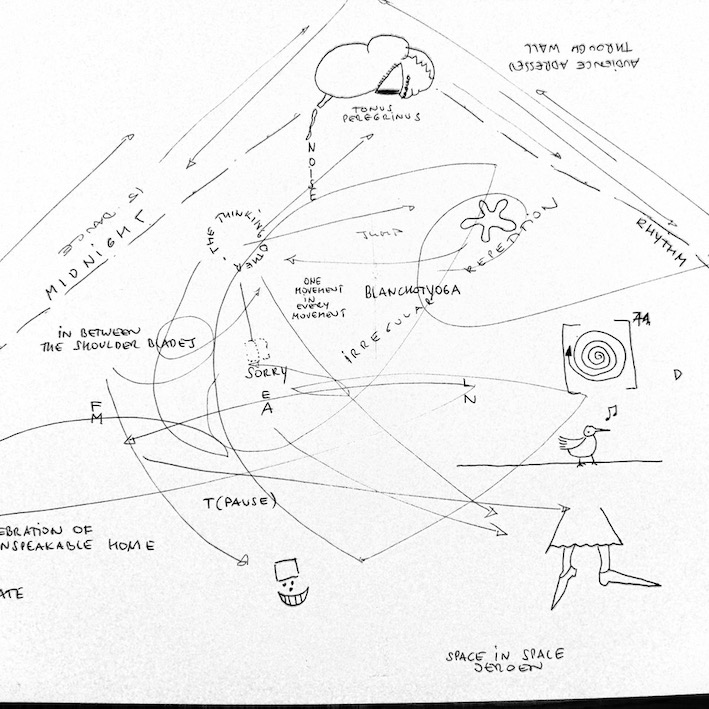 AUDIENCE ADRESSED
THROUGH WALL
TONUS
PEREGRINUS
NOISE
IS DANCE
MIDNIGHT
THE THINKING
OTHER
JUMP
REPETITION
RHYTHM
ONE
MOVEMENT
IN
EVERY
MOVEMENT
BLANCHOTYOGA
IRREGULAR
IN BETWEEN
THE SHOULDER BLADES
SORRY
E
A
F
M
L
N
D
T(PAUSE)
EBRATION OF
NSPEAKABLE HOME
ATE
SPACE IN SPACE
JEROEN